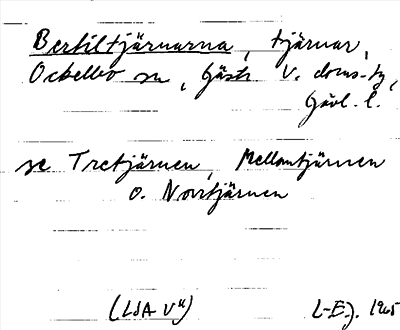 Bertiltjärnarna, tjärnar,
Ockelbo sn, Gästr. V. doms-ty,
Gävl. l.
se Tretjärnen, Mellantjärnen
o. Norrtjärnen
(LSA V") L-E.J. 1965